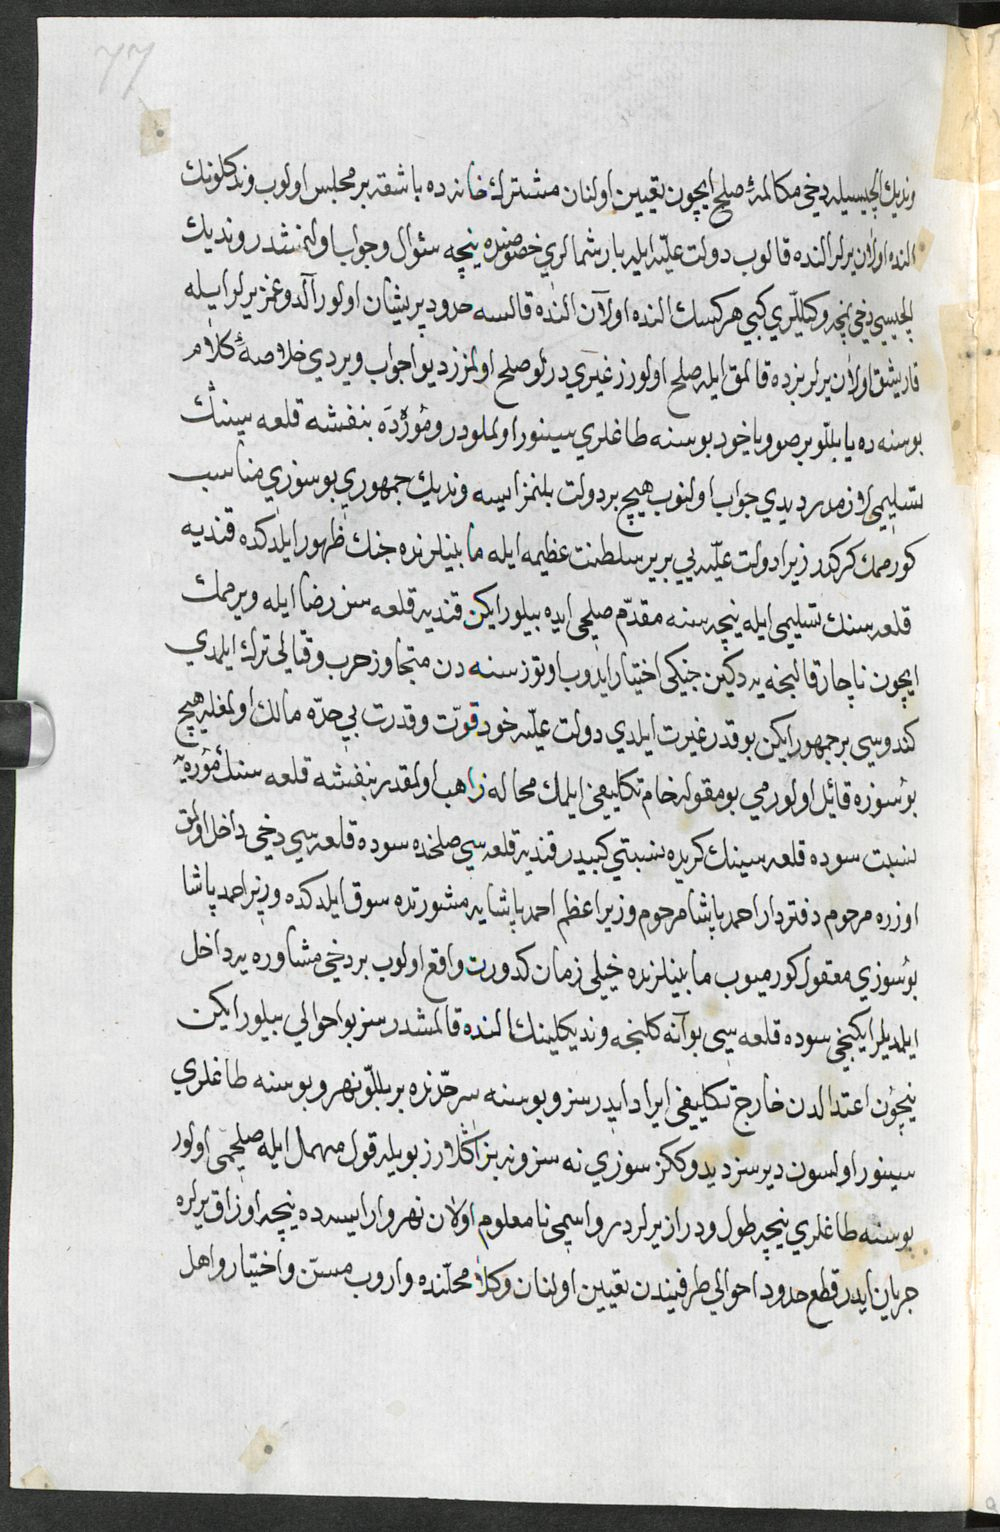 77
وندیك ایلچیسیله دخی مكالمهٔ صلح ایچون تعیین اولنان مشترك خانه ده باشقه بر مجلس اولوب وندكلونك
النده اولان یرلر النده قالوب دولت علیّه ایله بارشمالری خصوصنده نیچه سئوال وجواب اولنمشدر وندیك
ایلچیسی دخی نمچه وكیللری كبی هر كیسك النده اولان النده قالسه حدود پریشان اولور آلدوغمز یرلر ایله
قاریشق اولان یرلر بزده قالمق ایله صلح اولورز غیری درلو صلح اولمزز دیو جواب ویردی خلاصهٔ كلام
بوسنه ده یا بللو بر صو ویاخود بوسنه طاغلری سینور اولملودر ومُورَه ده بنفشه قلعه سینك
تسلیمی لازمدر دیدی جواب اولنوب هیچ بر دولت بلنمز ایسه وندیك جمهوری بو سوزی مناسب
كورمك كركدر زیرا دولت علیّه بی بریر سلطنت عظیمه ایله مابینلرنده جنك ظهور ایلدكده قندیه
قلعه سنك تسلیمی ایله نیچه سنه مقدّم صلحی ایده بیلور ایكن قندیه قلعه سن رضا ایله ویرمك
ایچون ناچار قالنجه یه دكین جنكی اختیار ایدوب اوتوز سنه دن متجاوز حرب وقتالی ترك ایلمدی
كندوسی بر جمهور ایكن بو قدر غیرت ایلدی دولت علیّه خود قوّت وقدرت بی حدّه مالك اولمغله هیچ
بو سوزه قائل اولورمی بو مقوله خام تكلیفی ایلمك محاله ذاهب اولمقدر بنفشه قلعه سنك مُورَه یه
نسبت سوده قلعه سینك كریده نسبتی كبیدر قندیه قلعه سی صلحنده سوده قلعه سی دخی داخل اولمق
اوزره مرحوم دفتردار احمد پاشا مرحوم وزیر اعظم احمد پاشایه مشورتده سوق ایلدكده وزیر احمد پاشا
بو سوزی معقول كورمیوب مابینلرنده خیلی زمان كدورت واقع اولوب بر دخی مشاوره یه داخل
ایلمدیلر ایكنجی سوده قلعه سی بو آنه كلنجه وندیكلینك النده قالمشدر سز بو احوالی بیلور ایكن
نیچون اعتدالدن خارج تكلیفی ایراد ایدرسز وبوسنه سرحدّنده بر بللّو نهر وبوسنه طاغلری
سینور اولسون دیرسز دیدوككز سوزی نه سز ونه بز اكلارز بویله قول مهمل ایله صلحمی اولور
بوسنه طاغلری نیچه طول ودراز یرلردر واسمی نامعلوم اولان نهر وار ایسه ده نیچه اوزاق یرلره
جریان ایدر قطع حدود احوالی طرفیندن تعیین اولنان وكلا محلّنده واروب مسنّ واختیار واهل